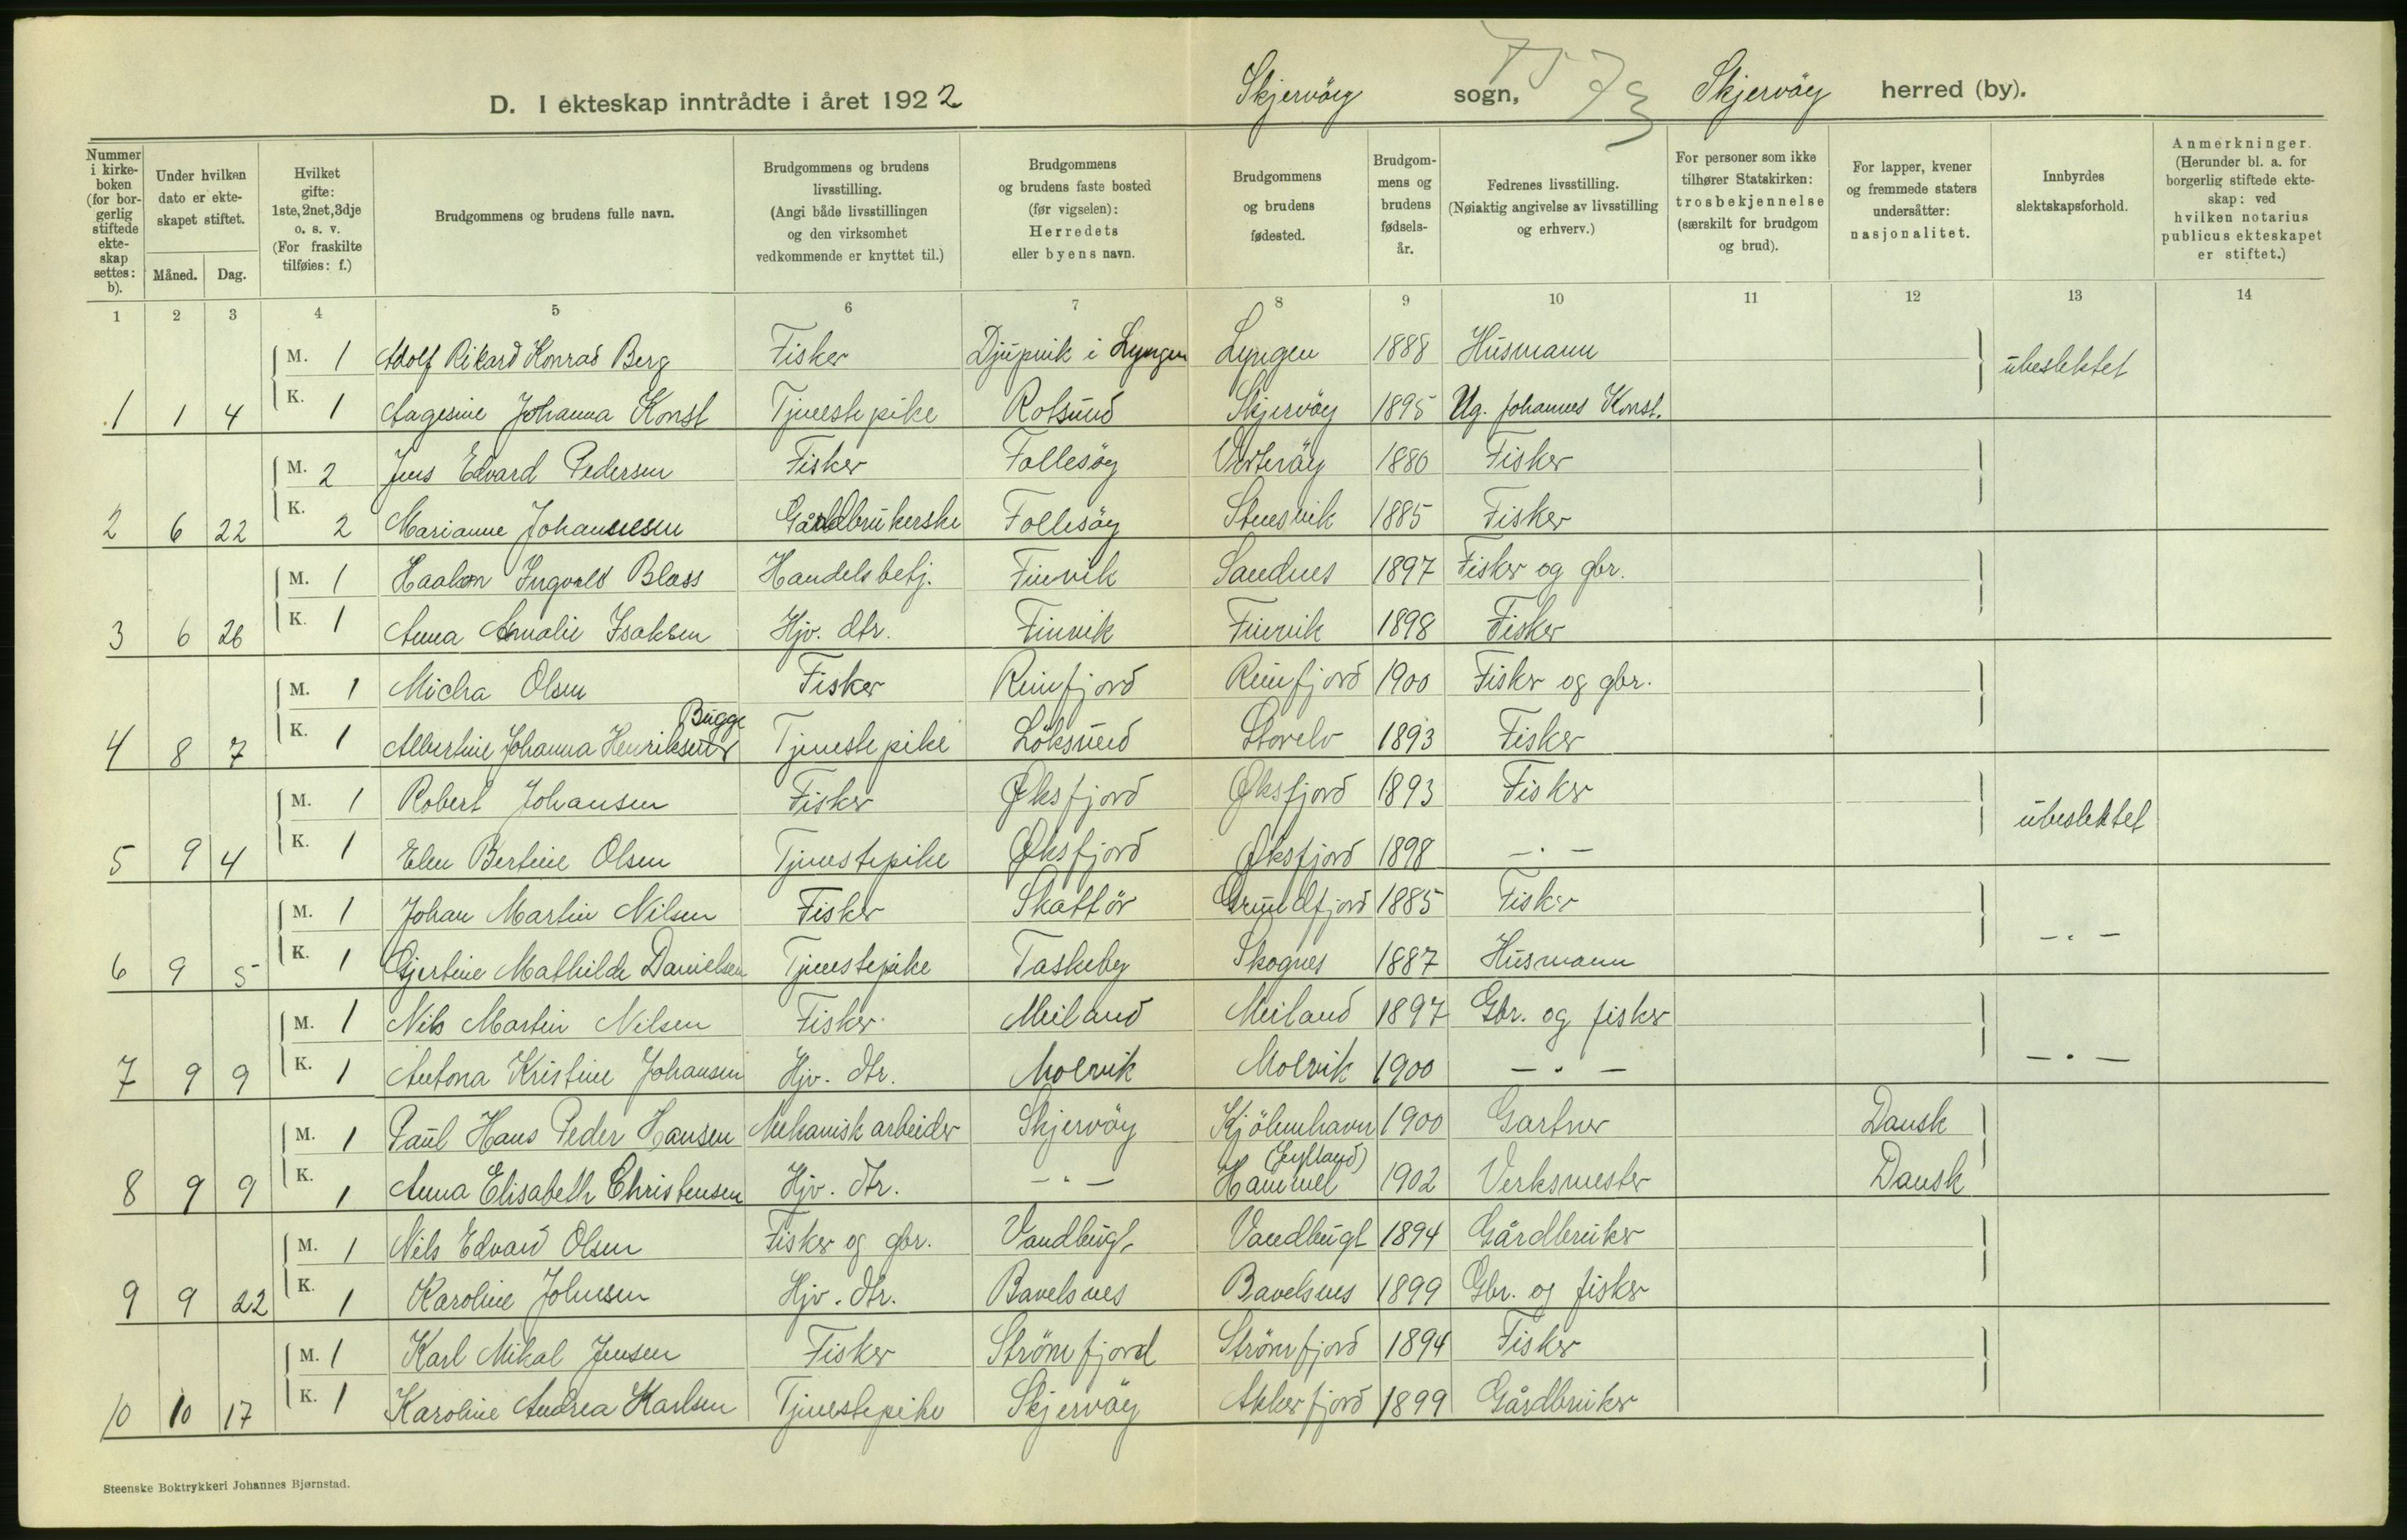 D. I ekteskap inntrådte i året 1922 Skjervöy sogn, Skjervöy herred (by).
Nummer i kirkeboken (for borgerlig stiftede ekteskap settes: b).
Under hvilken dato er ekteskapet stiftet.
Måned. Dag.
Hvilket gifte: 1ste, 2net, 3dje o. s. v. (For fraskilte tilføies: f.)
Brudgommens og brudens fulle navn.
Brudgommens og brudens livsstilling. (Angi både livsstillingen og den virksomhet vedkommende er knyttet til.)
Brudgommens og brudens faste bosted (før vigselen): Herredets eller byens navn.
Brudgommens og brudens fødested.
Brudgommens og brudens fødselsår.
Fedrenes livsstilling. (Nøiaktig angivelse av livsstilling og erhverv.)
For personer som ikke tilhører Statskirken: trosbekjennelse (særskilt for brudgom og brud).
For lapper, kvener og fremmede staters undersåtter: nasjonalitet.
Innbyrdes slektskapsforhold.
Anmerkninger. (Herunder bl. a. for borgerlig stiftede ekteskap: ved hvilken notarius publicus ekteskapet er stiftet.)
1 2 3 4 5 6 7 8 9 10 11 12 13 14
M. 1 Adolf Rikard Konrad Berg Fisker Djupvik i Lyngen Lyngen 1888 Husmann ubeslektet
1 1 4 K. 1 Aagesine Johanna Konst Tjenestepike Rotsund Skjervöy 1895 Ug. Johannes Konst.
M. 2 Jens Edvard Pedersen Fisker Follesöy Vorteröy 1880 Fisker
2 6 22 K. 2 Marianne Johannesen Gårdbrukerske Follesöy Stuesvik 1885 Fisker
M. 1 Haakon Ingvald Blass Handelsbetj. Finvik Sandnes 1897 Fisker og gbr.
3 6 26 K. 1 Anna Amalie Isaksen Hjv. dtr. Finvik Finvik 1898 Fisker
M. 1 Micha Olsen Fisker Reinfjord Reinfjord 1900 Fisker og gbr.
4 8 7 K. 1 Albertine Johanna Henriksen Bugge Tjenestepike Löksund Storelv 1893 Fisker
M. 1 Robert Johansen Fisker Øksfjord Øksfjord 1893 Fisker ubeslektet
5 9 4 K. 1 Elen Bertine Olsen Tjenestepike Øksfjord Øksfjord 1898 — " —
M. 1 Johan Martin Nilsen Fisker Skattör Grundfjord 1885 Fisker — " —
6 9 5 K. 1 Gjertine Mathilde Danielsen Tjenestepike Taskeby Skognes 1887 Husmann
M. 1 Nils Martin Nilsen Fisker Meiland Meiland 1897 Gbr. og fisker — " —
7 9 9 K. 1 Antona Kristine Johansen Hjv. dtr. Molvik Molvik 1900 — " —
M. 1 Paul Hans Peder Hansen Mekanisk arbeider Skjervöy Kjöbenhavn 1900 Gartner Dansk
8 9 9 K. 1 Anna Elisabeth Christensen Hjv. dtr. — " — Hammel (Jylland) 1902 Verksmester Dansk
M. 1 Nils Edvard Olsen Fisker og gbr. Vandbugt Vandbugt 1894 Gårdbruker
9 9 22 K. 1 Karoline Johnsen Hjv. dtr. Bavelsnes Bavelsnes 1899 Gbr. og fisker
M. 1 Karl Mikal Jensen Fisker Strömfjord Strömfjord 1894 Fisker
10 10 17 K. 1 Karoline Andrea Karlsen Tjenestepike Skjervöy Akkerfjord 1899 Gårdbruker
Steenske Boktrykkeri Johannes Bjørnstad.